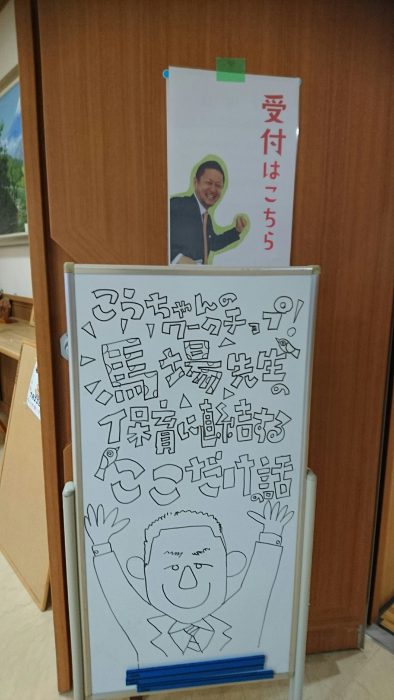 受付はこちら
こうちゃんの
ワークチョップ!
馬場先生の
保育に直結する
ここだけの話